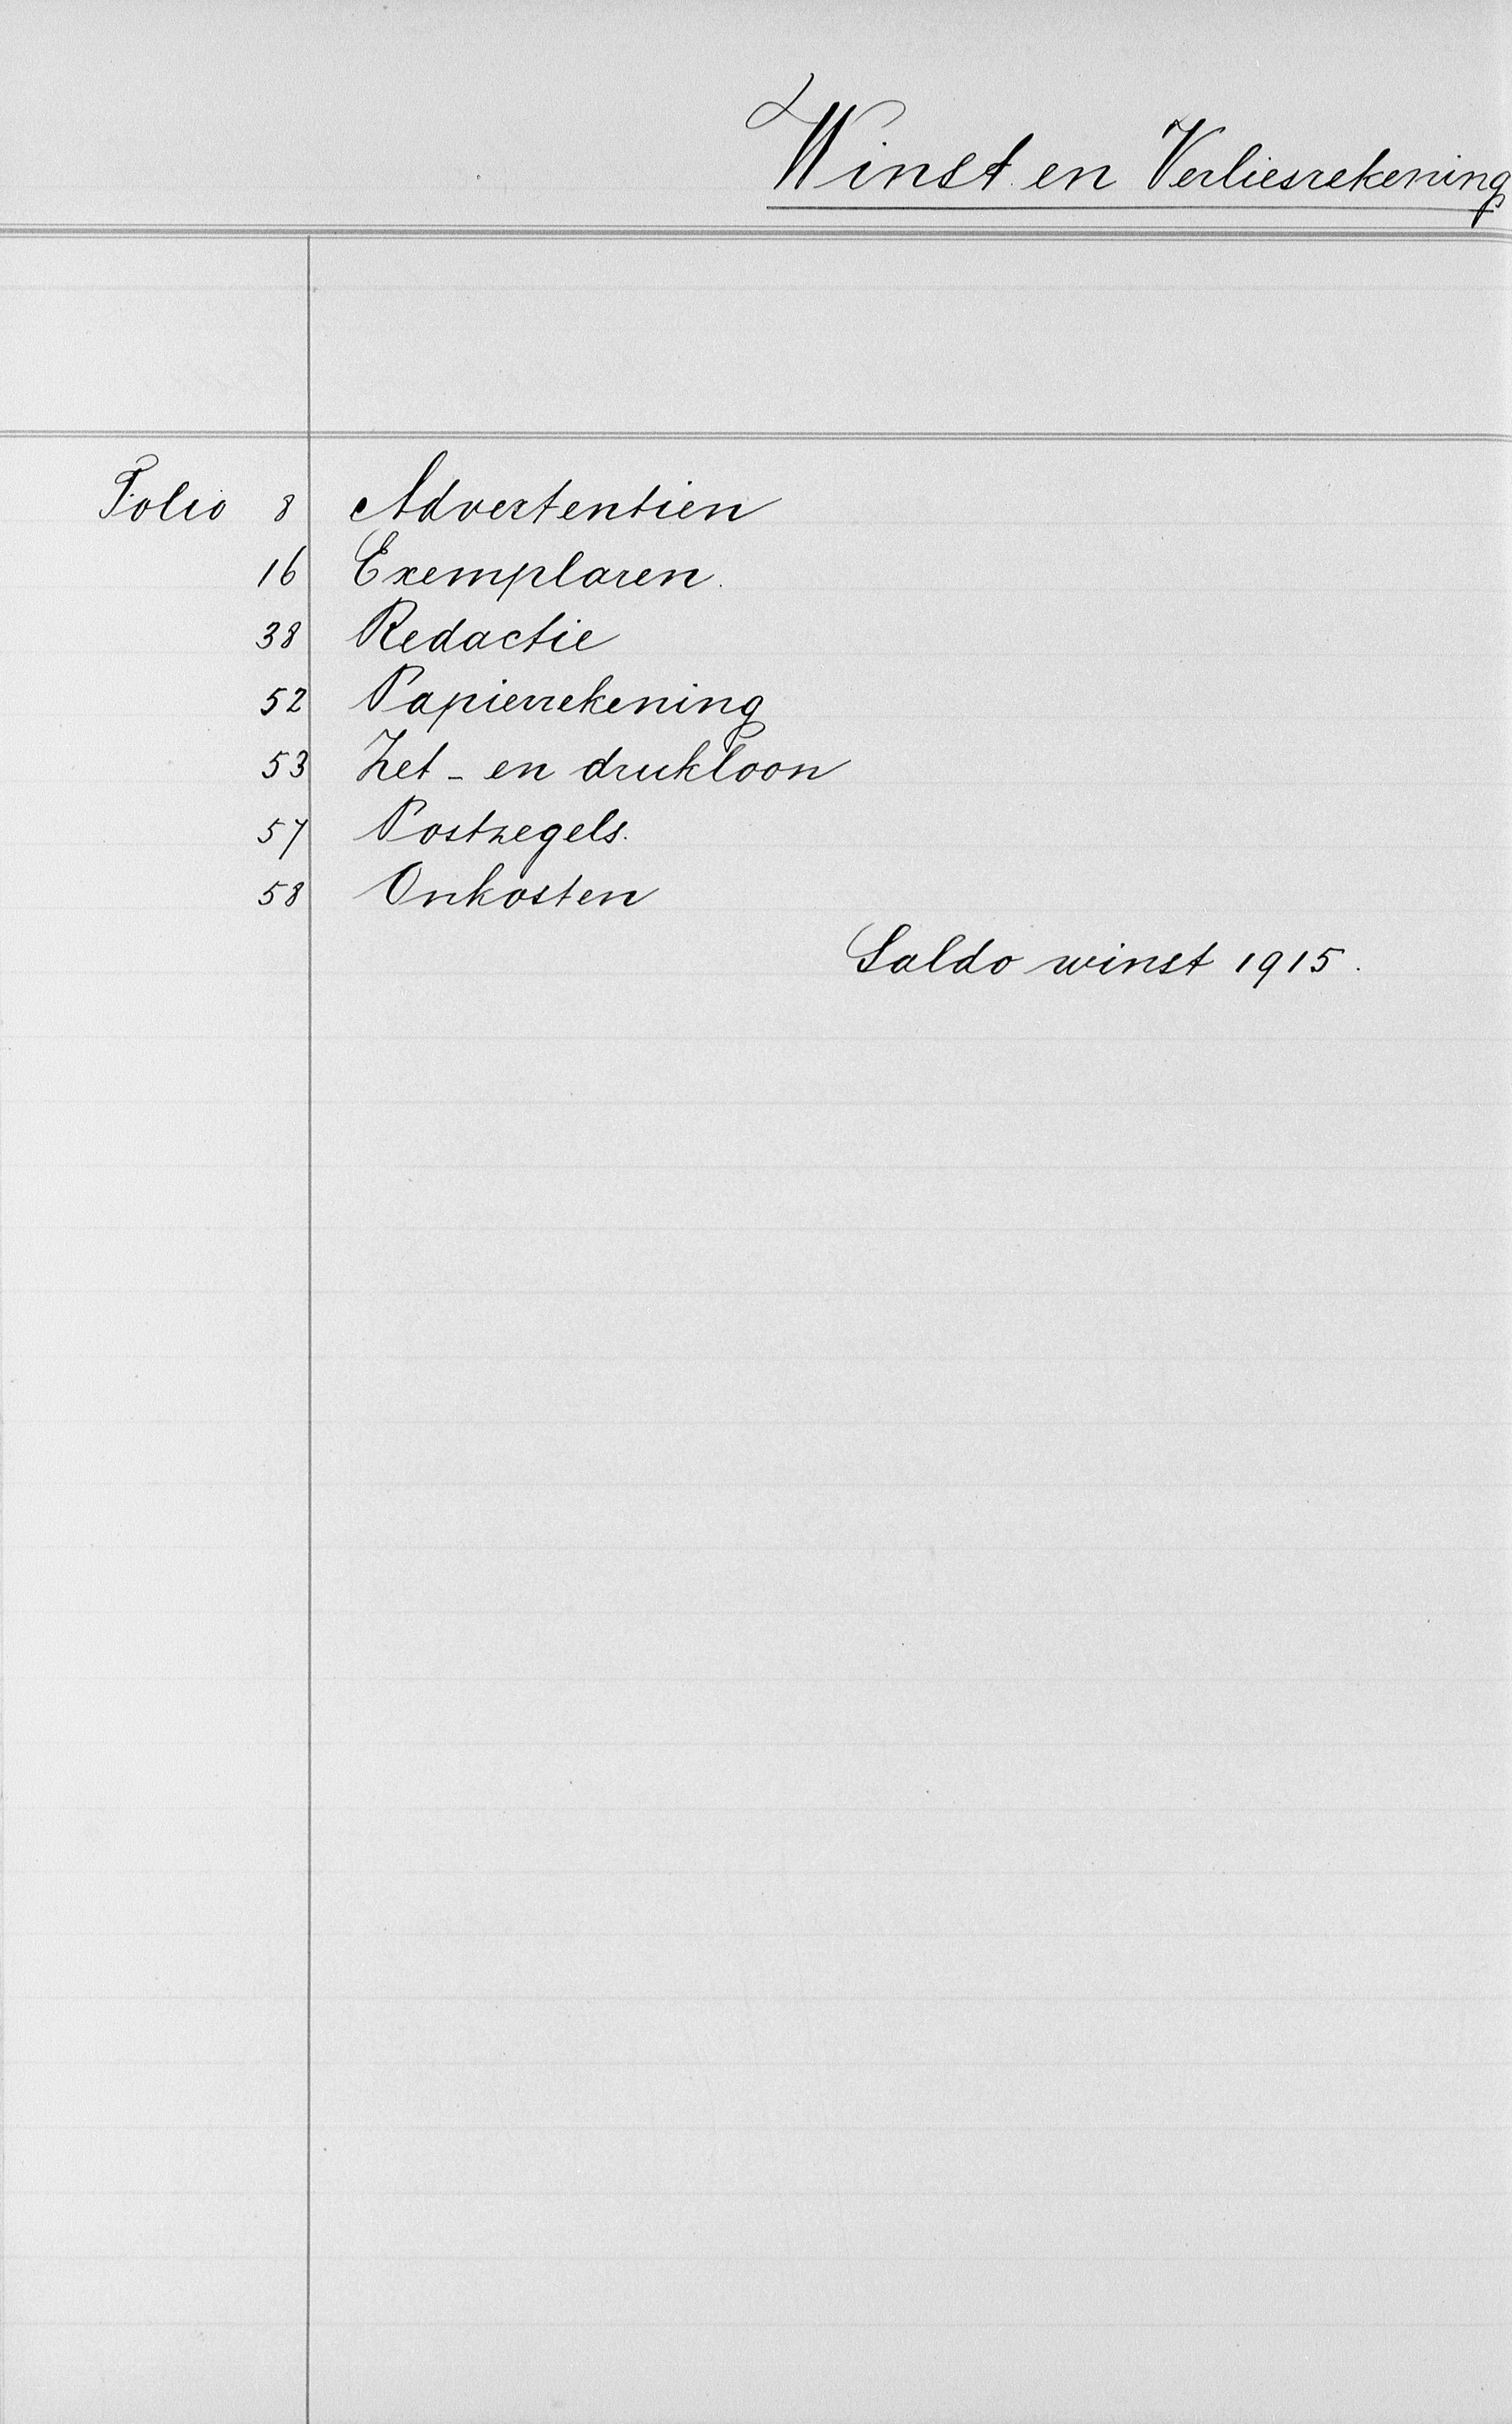 Winst en Verliesrekening
Folio 8 Advertentien
16 Exemplaren.
38 Redactie
52 Papierrekening
53 Zet- en drukloon
57 Postzegels.
58 Onkosten
Saldo winst 1915.